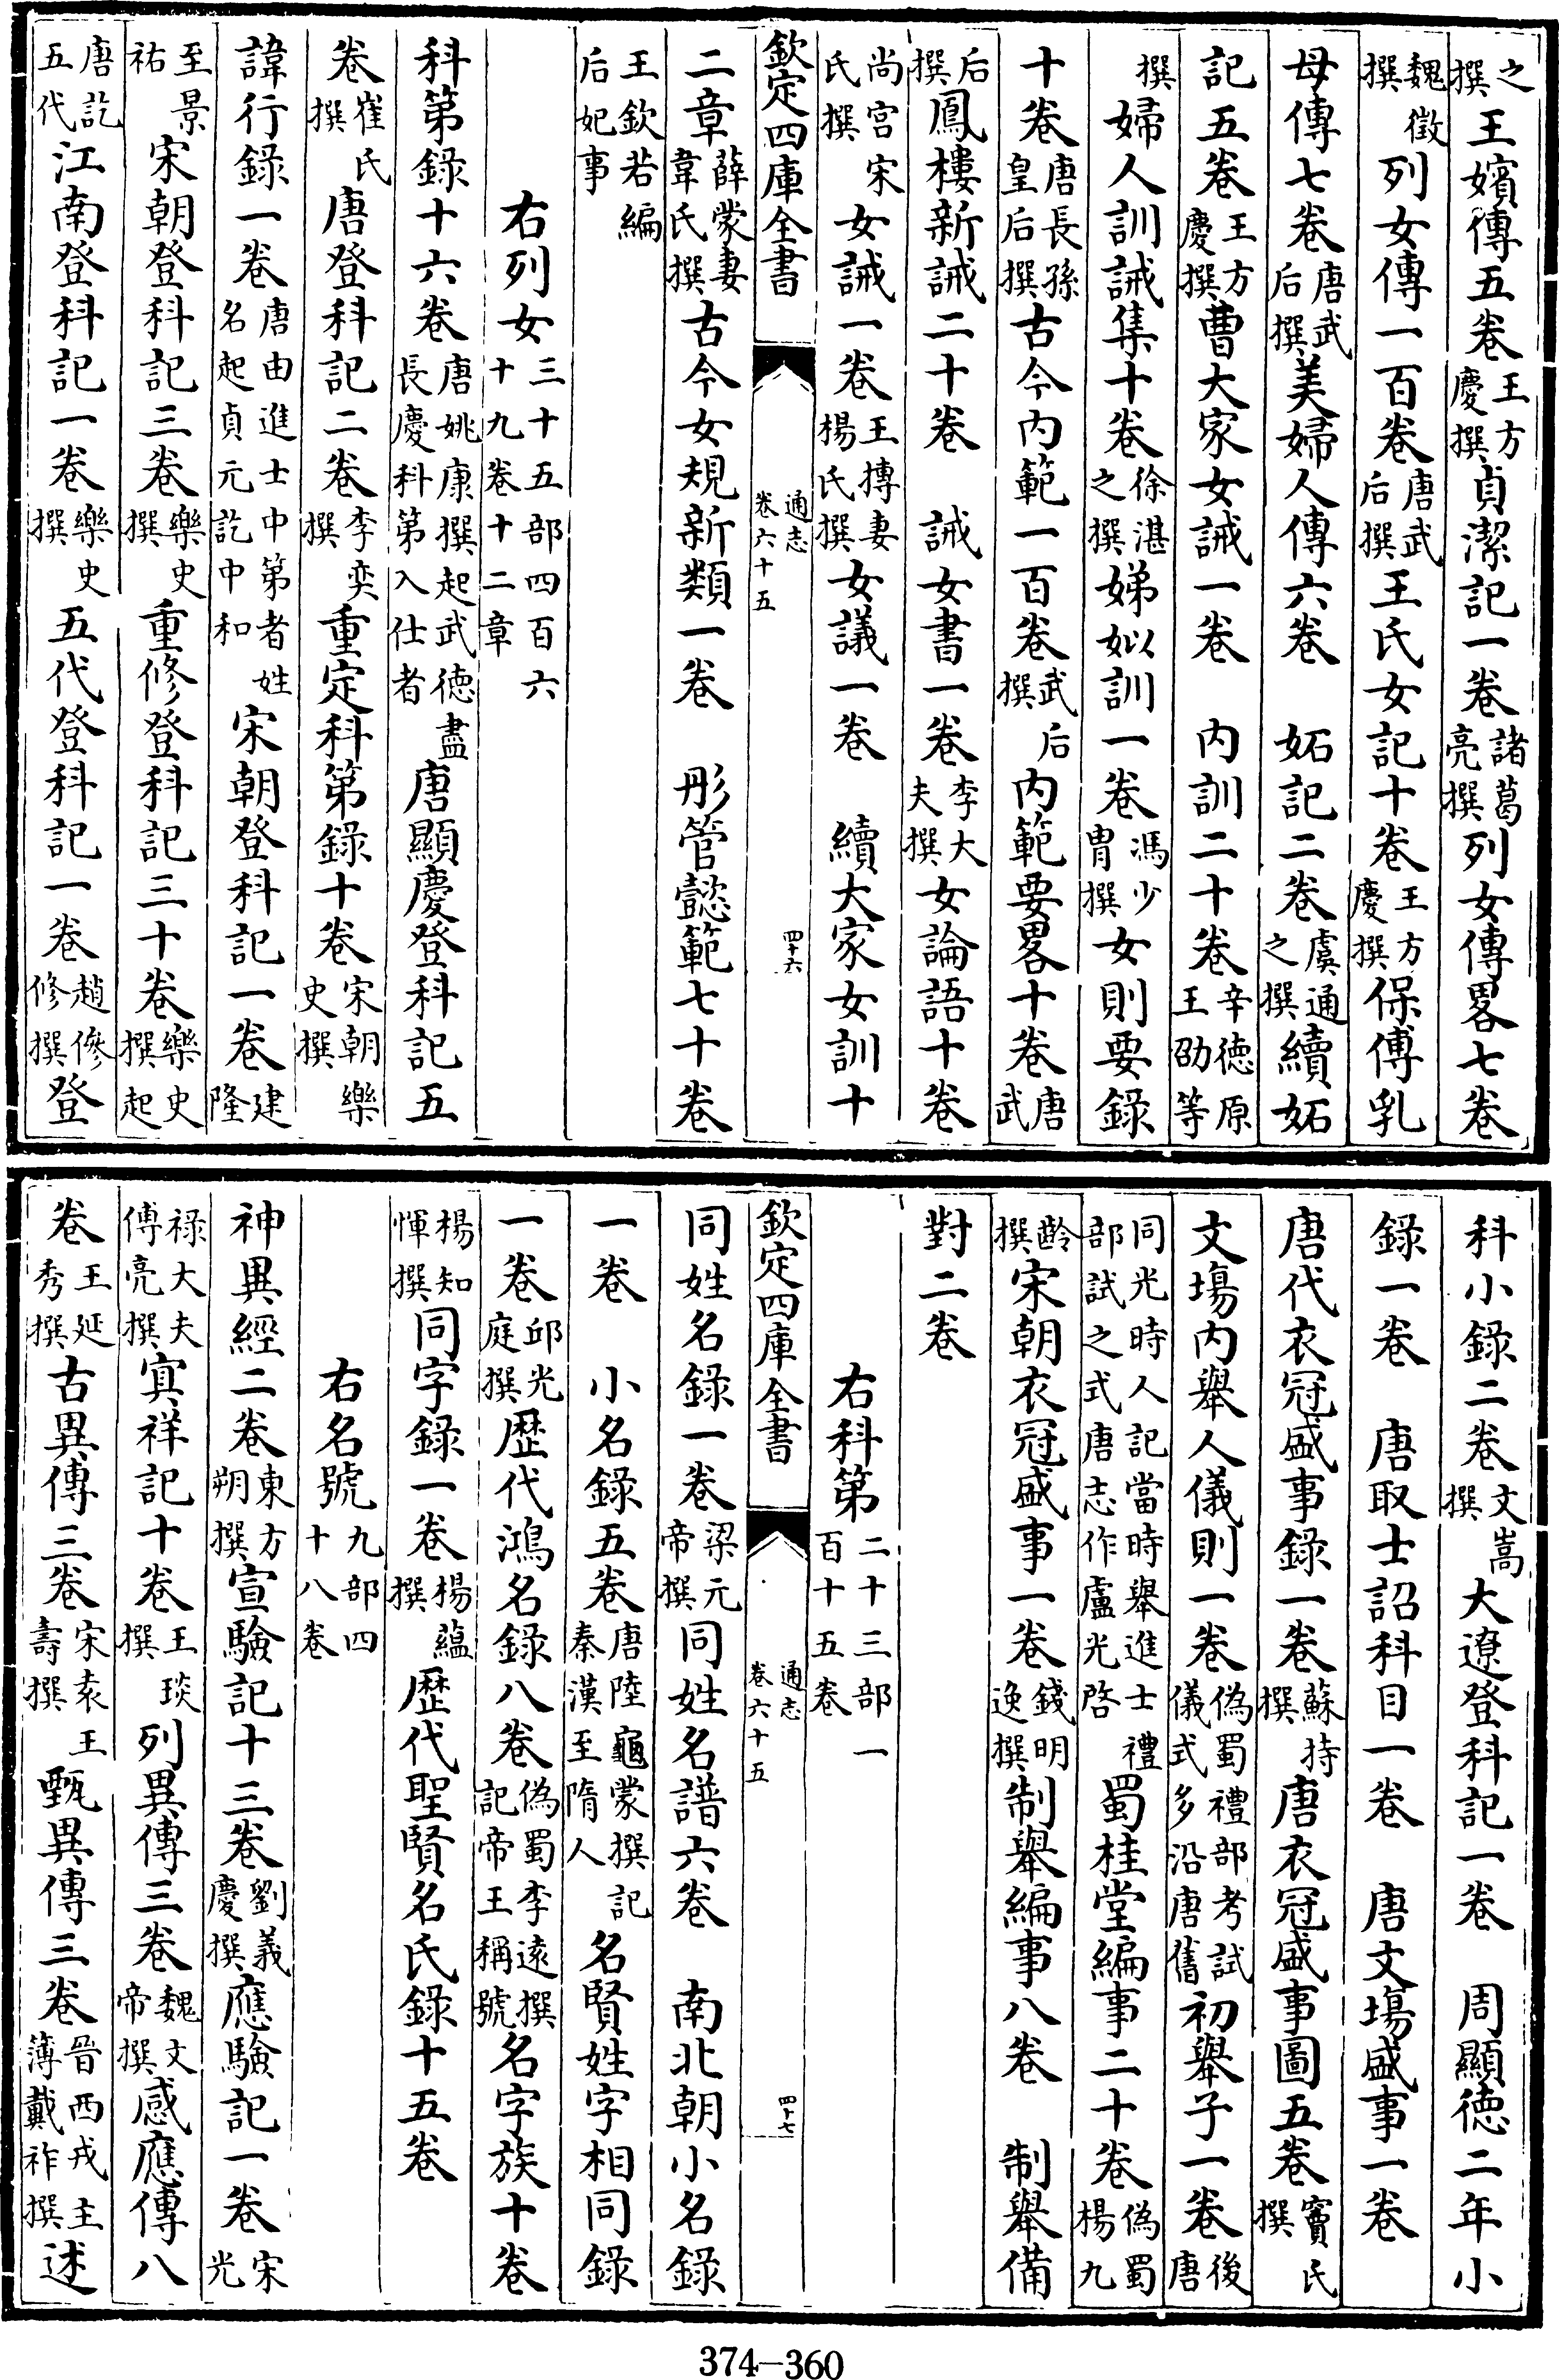 之撰王嬪傳五卷王方慶撰貞潔記一卷諸葛亮撰列女傳畧七卷
魏徵撰列女傳一百卷唐武后撰王氏女記十卷王方慶撰保傅乳
母傳七卷唐武后撰美婦人傳六卷　妬記二卷虞通之撰續妬
記五卷王方慶撰曹大家女誡一卷　内訓二十卷辛德原王劭等
撰婦人訓誡集十卷徐湛之撰娣姒訓一卷馮少胄撰女則要錄
十卷唐長孫皇后撰古今内範一百卷武后撰内範要畧十卷唐武
后撰鳳樓新誡二十卷　誡女書一卷李大夫撰女論語十卷
尚宫宋氏撰女誡一卷王摶妻楊氏撰女議一卷　續大家女訓十
欽定四庫全書　通志卷六十五　四十六
二章薛蒙妻韋氏撰古今女規新類一卷　彤管懿範七十卷
王欽若編后妃事
右列女三十五部四百六十九卷十二章
科第錄十六卷唐姚康撰起武德盡長慶科第入仕者唐顯慶登科記五
卷崔氏撰唐登科記二卷李奕撰重定科第錄十卷宋朝樂史撰
諱行錄一卷唐由進士中第者姓名起貞元訖中和宋朝登科記一卷建隆
至景祐宋朝登科記三卷樂史撰重修登科記三十卷樂史撰起
唐訖五代江南登科記一卷樂史撰五代登科記一卷趙修撰登
科小錄二卷文嵩撰大遼登科記一卷　周顯德二年小
錄一卷　唐取士詔科目一卷　唐文場盛事一卷
唐代衣冠盛事錄一卷蘇持撰唐衣冠盛事圖五卷竇氏撰
文場内舉人儀則一卷偽蜀禮部考試儀式多沿唐舊初舉子一卷後唐
同光時人記當時舉進士禮部試之式唐志作盧光啓蜀桂堂編事二十卷偽蜀楊九
齡撰宋朝衣冠盛事一卷錢明逸撰制舉編事八卷　制舉備
對二卷
右科第二十三部一百十五卷
欽定四庫全書　通志卷六十五　四十七
同姓名錄一卷梁元帝撰同姓名譜六卷　南北朝小名錄
一卷　小名錄五卷唐陸龜蒙撰記秦漢至隋人名賢姓字相同錄
一卷邱光庭撰歷代鴻名錄八卷偽蜀李遠撰記帝王稱號名字族十卷
楊知惲撰同字錄一卷楊蘊撰歷代聖賢名氏錄十五卷
右名號九部四十八卷
神異經二卷東方朔撰宣驗記十三卷劉義慶撰應驗記一卷宋光
祿大夫傅亮撰冥祥記十卷王琰撰列異傳三卷魏文帝撰感應傳八
卷王延秀撰古異傳三卷宋袁王壽撰甄異傳三卷晉西戎主簿戴祚撰述
374-360